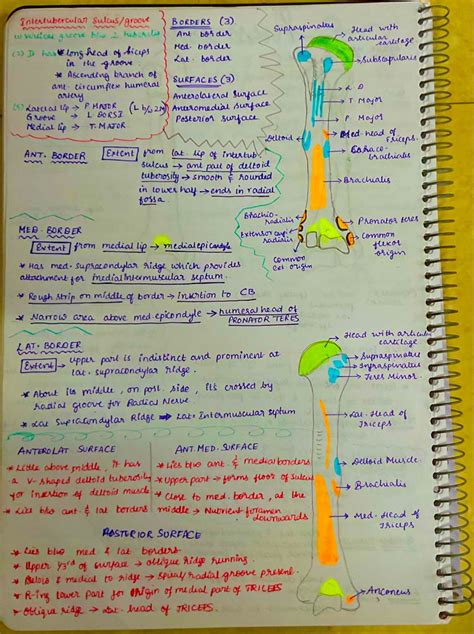 Intertubercular Sulcus/groove
(2) It has * Long head of Biceps
in the groove
* Ascending branch of
ant. circumflex humeral
artery
(3) Lateral lip → P. MAJOR
Groove → L. DORSI
Medial lip → T. MAJOR
BORDERS (3)
Ant. border
Med. border
Lat. border
SURFACES (3)
Anterolateral Surface
Anteromedial Surface
Posterior Surface
ANT. BORDER
Extent from lat lip of intertub.
sulcus → ant part of deltoid
tuberosity → smooth & rounded
in lower half → ends in radial
fossa
MED BORDER
Extent from medial lip → medial epicondyle
* Has med. supracondylar ridge which provides
attachment for medial intermuscular septum.
* Rough strip on middle of border → insertion to CB
* Narrow area above med. epicondyle → humeral head of
PRONATOR TERES
LAT. BORDER
Extent → upper part is indistinct and prominent at
lat. supracondylar ridge.
* About its middle, on post. side, its crossed by
radial groove for Radial Nerve
* Lat Supracondylar Ridge → Lat. Intermuscular septum
ANTEROLAT SURFACE
* Little above middle, it has
a V-shaped deltoid tuberosity
for insertion of deltoid muscle
* Lies b/w ant. & lat borders
ANT. MED. SURFACE
* Lies b/w ant. & medial borders
* Upper part → forms floor of sulcus
* Close to med. border, at the
middle → Nutrient foramen
downwards
POSTERIOR SURFACE
* Lies b/w med & lat borders.
* Upper 1/3rd of surface → oblique ridge running.
* Below & medial to ridge → spiral/radial groove present.
* R-ing lower part for origin of medial part of TRICEPS
* Oblique ridge → Lat. head of TRICEPS.
Supraspinatus
Head with
articular
cartilage
Subscapularis
L.D
T. Major
P. Major
Deltoid
Med. head of
Triceps.
Coraco-
brachialis
Brachialis
Brachio-
radialis
Pronator teres
Common
flexor
origin
Common
ext origin
Head with articular
cartilage
Supraspinatus
Infraspinatus
Teres Minor
Lat. Head of
Triceps
Deltoid Muscle
Brachialis
Med. Head of
Triceps
Anconeus